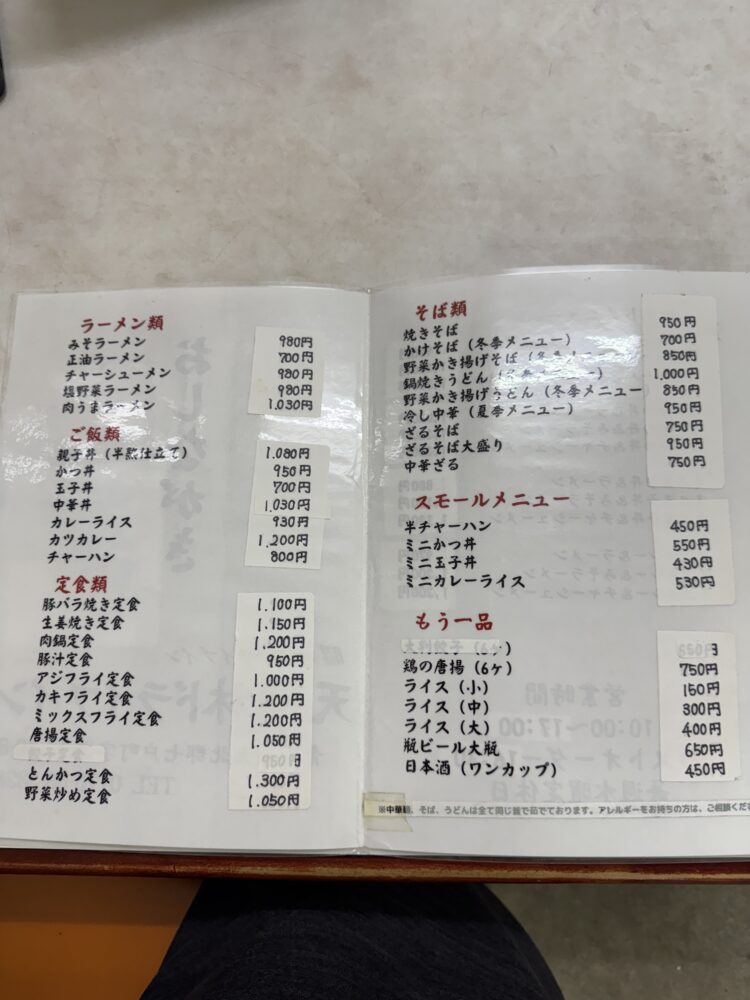 ラーメン類
みそラーメン 980円
正油ラーメン 700円
チャーシューメン 980円
塩野菜ラーメン 980円
肉うまラーメン 1.030円
ご飯類
親子丼（半熟仕立て） 1.080円
かつ丼 950円
玉子丼 700円
中華丼 1.030円
カレーライス 930円
カツカレー 1.200円
チャーハン 800円
定食類
豚バラ焼き定食 1.100円
生姜焼き定食 1.150円
肉鍋定食 1.200円
豚汁定食 950円
アジフライ定食 1.000円
カキフライ定食 1.200円
ミックスフライ定食 1.200円
唐揚定食 1.050円
とんかつ定食 1.300円
野菜炒め定食 1.050円
そば類
焼きそば 950円
かけそば（冬季メニュー） 700円
野菜かき揚げそば（冬季メニュー 850円
鍋焼きうどん 1.000円
野菜かき揚げうどん（冬季メニュー 850円
冷し中華（夏季メニュー） 950円
ざるそば 750円
ざるそば大盛り 950円
中華ざる 750円
スモールメニュー
半チャーハン 450円
ミニかつ丼 550円
ミニ玉子丼 430円
ミニカレーライス 530円
もう一品
鶏の唐揚（6ヶ） 750円
ライス（小） 150円
ライス（中） 300円
ライス（大） 400円
瓶ビール大瓶 650円
日本酒（ワンカップ） 450円
※中華麺、そば、うどんは全て同じ釜で茹でております。アレルギーをお持ちの方は、ご相談くださ